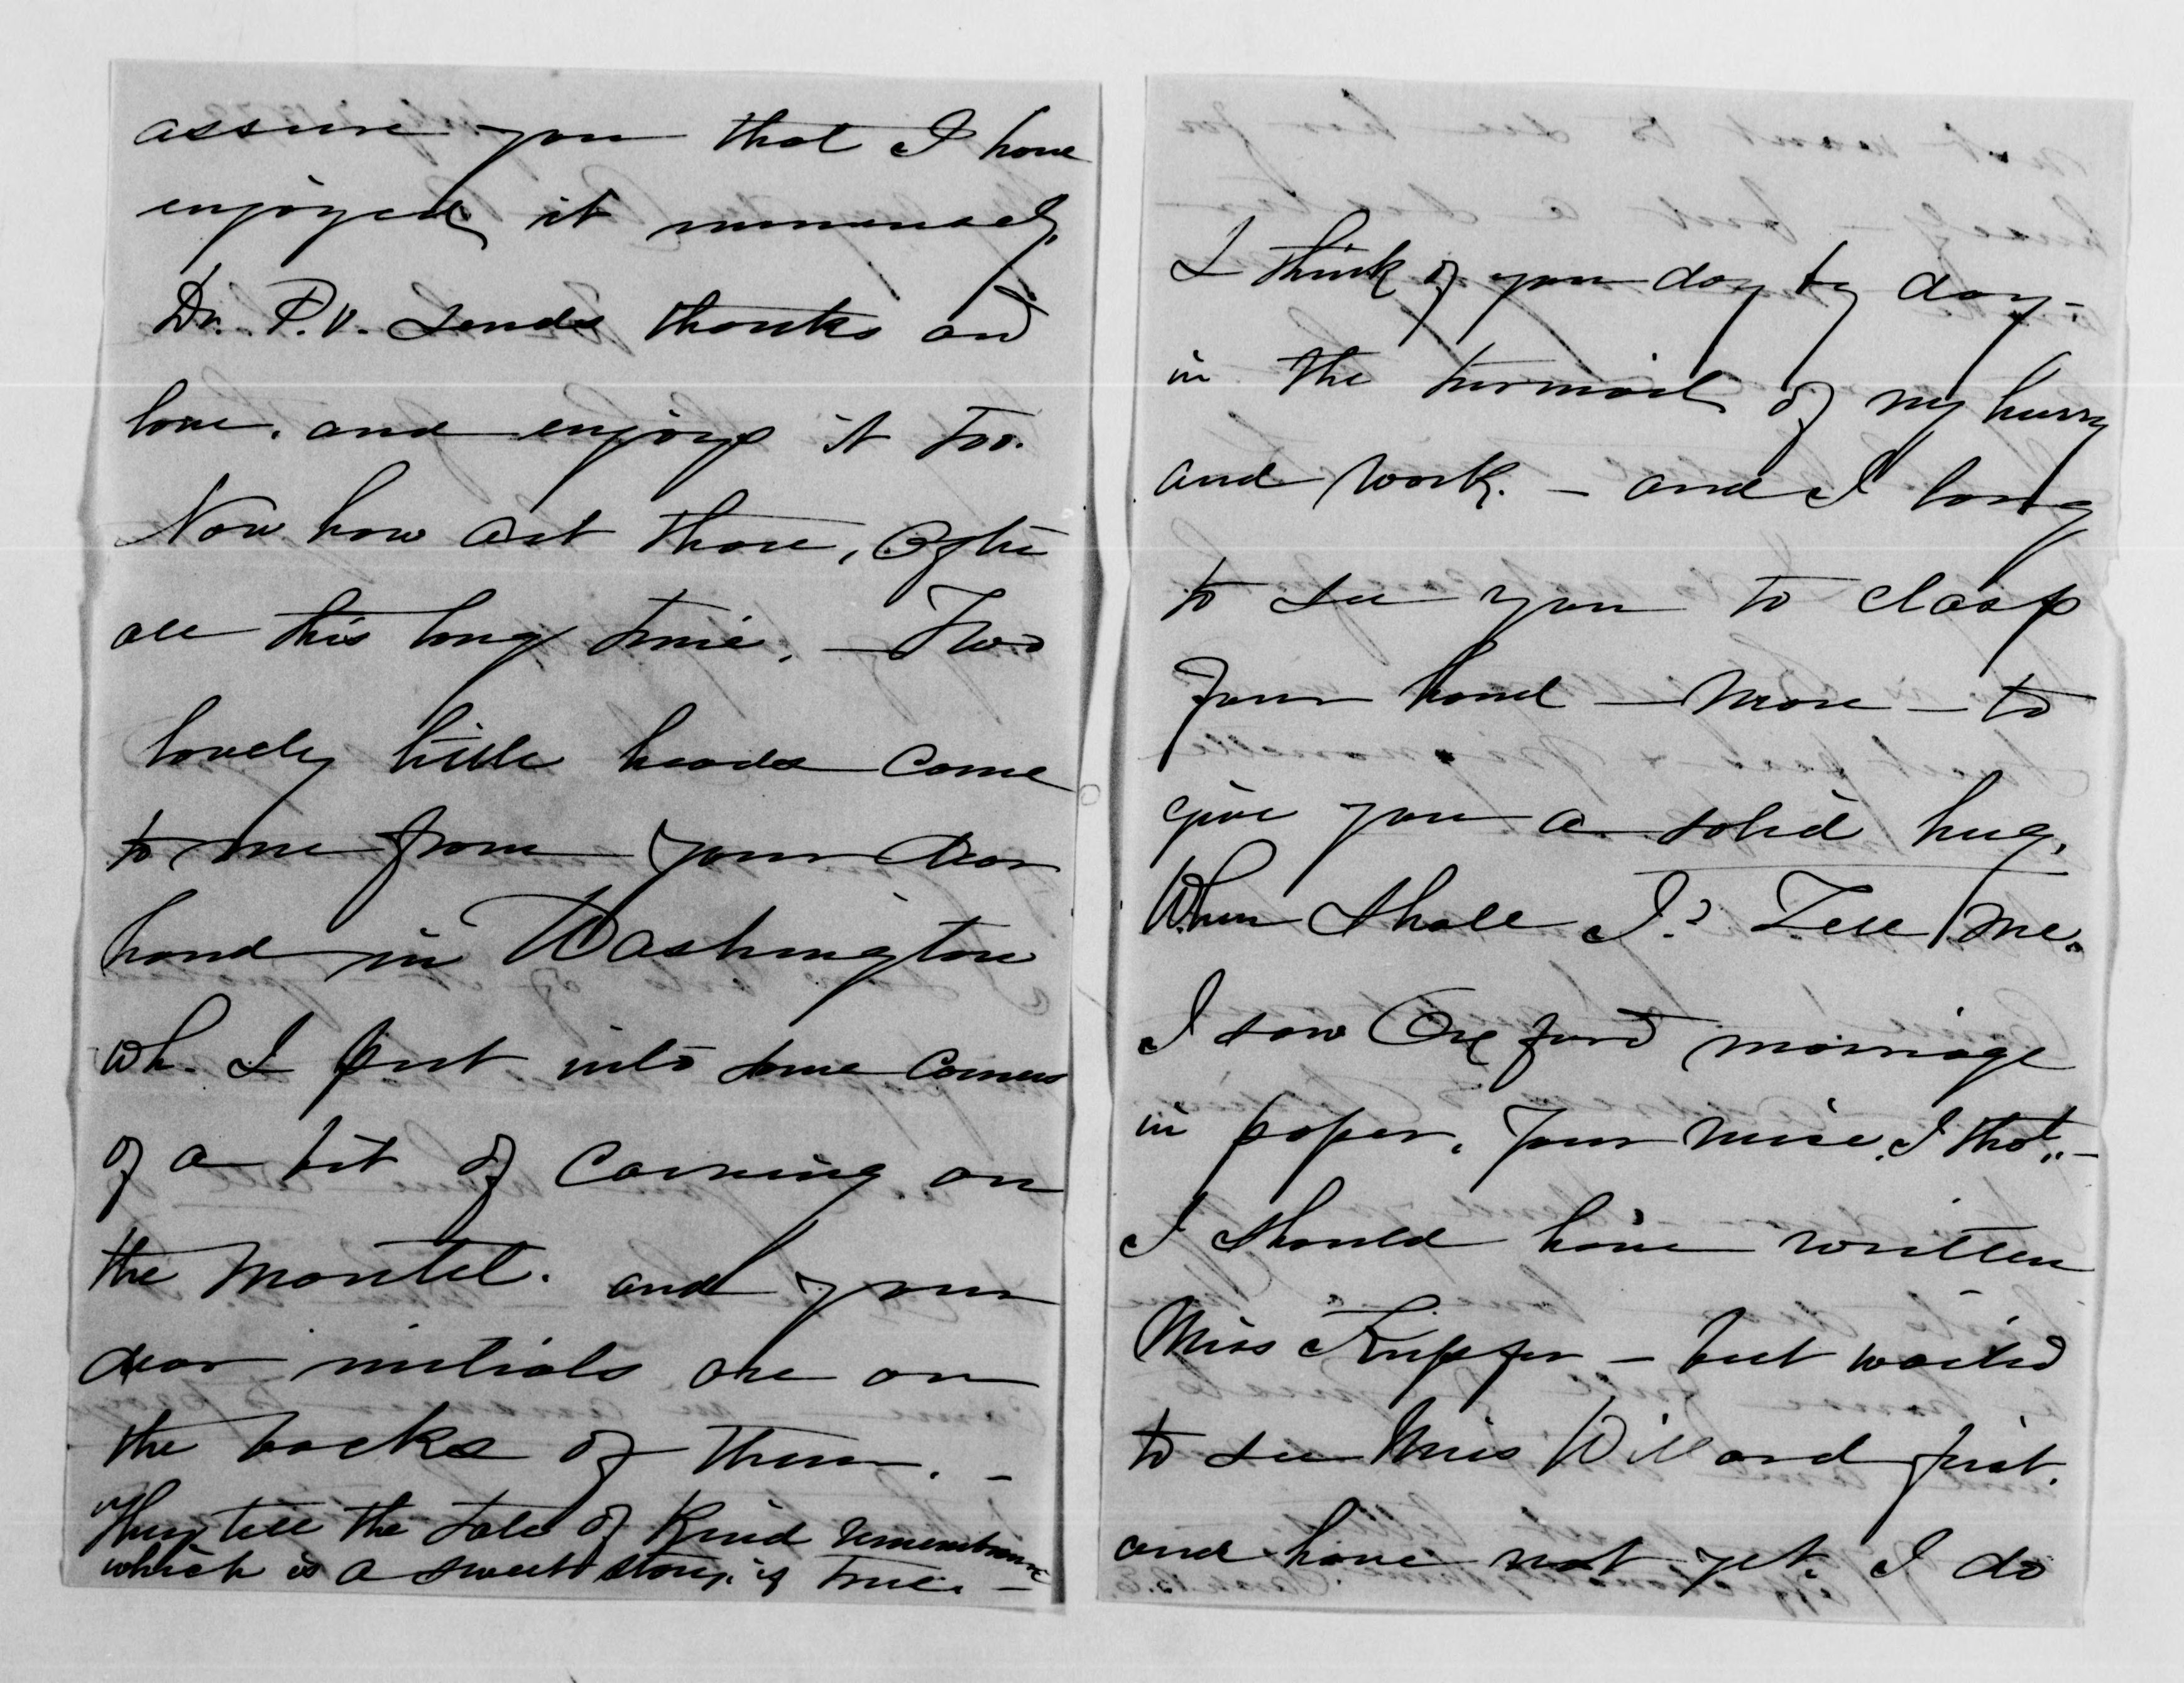 assure you that I have
enjoyed it immensely.
Dr. P.V. sends thanks and
love. and enjoys it too.
Now how art thou, after
all this long time. — Two
lovely little heads came
to me from your dear
hand in Washington
wh. I put into some corners
of a bit of carving on
the mantel. and your
dear initials are on
the backs of them. —
They tell the tale of kind remembrance
which is a sweet story, if true. —
I think of you day by day -
in the turmoil of my hurry
and work. — and I long
to see you to clasp
your hand — more — to
give you a solid hug.
When shall I? Tell me.
I saw Oxford marriage
in paper. Your niece. I thot. —
I should have written
Miss — but waited
to see Miss Willard first.
and have not yet. I do